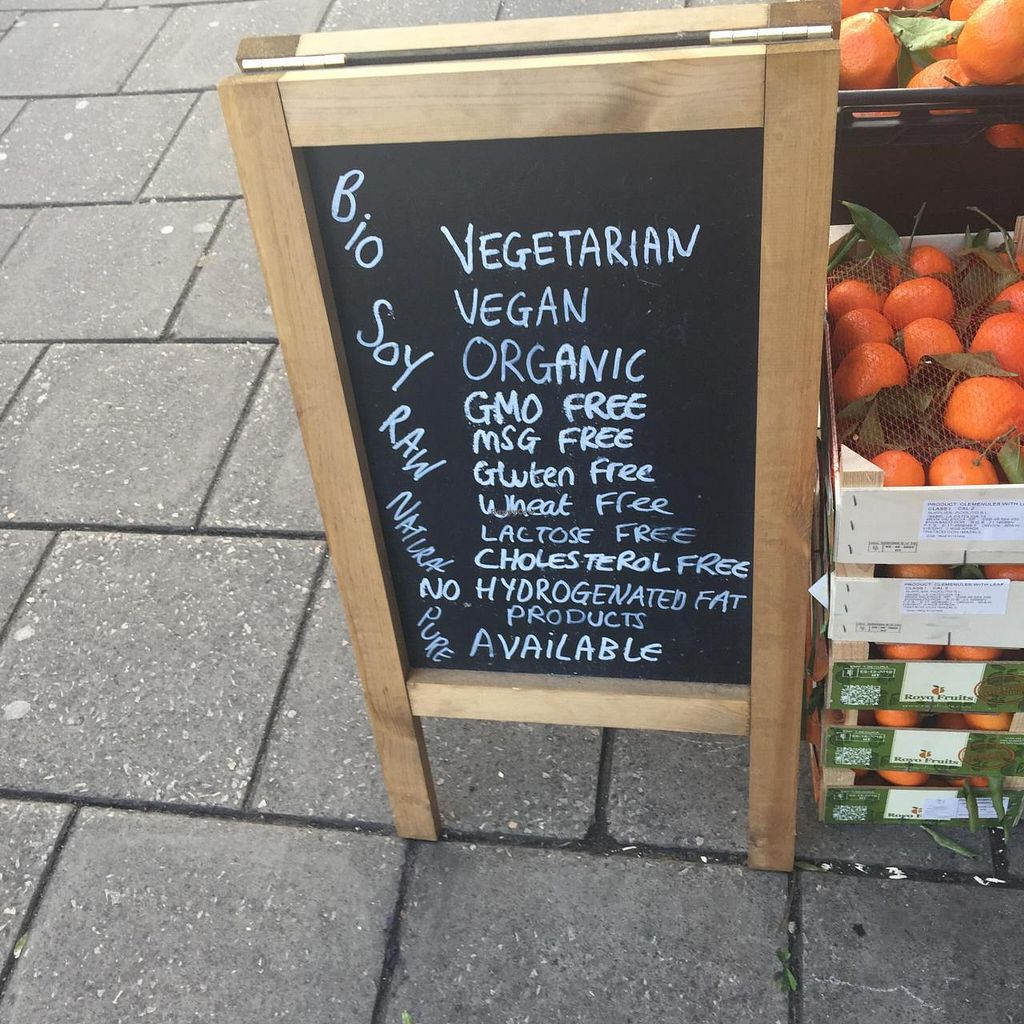 Bio
SOY
RAW
NATURAL
PURE
VEGETARIAN
VEGAN
ORGANIC
GMO FREE
MSG FREE
Gluten Free
Wheat Free
LACTOSE FREE
CHOLESTEROL FREE
NO HYDROGENATED FAT
PRODUCTS
AVAILABLE
PRODUCT: CLEMENULES WITH LEAF
CLASS I CAL 2
Royo Fruits
Royo Fruits
Royo Fruits